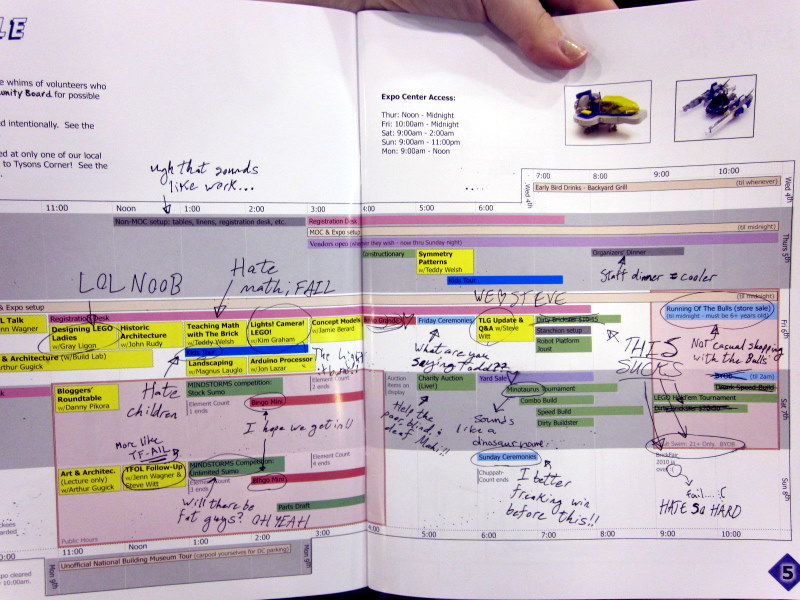 LE
e whims of volunteers who
unity Board for possible
d intentionally. See the
ed at only one of our local
to Tysons Corner! See the
Expo Center Access:
Thur: Noon - Midnight
Fri: 10:00am - Midnight
Sat: 9:00am - 2:00am
Sun: 9:00am - 11:00pm
Mon: 9:00am - Noon
ugh that sounds
like work...
7:00 8:00 9:00 10:00
Wed 4th
Early Bird Drinks - Backyard Grill
(til whenever)
Wed 4th
11:00 Noon 1:00 2:00 3:00 4:00 5:00 6:00
Non-MOC setup: tables, linens, registration desk, etc.
Registration Desk
MOC & Expo setup
(til midnight)
Vendors open (whenever they wish - now thru Sunday night)
Symmetry
Patterns
w/Teddy Welsh
Organizers' Dinner
Kids Tour
Staff dinner = cooler
Thurs 5th
LOL NOOB
Hate
math; FAIL
WE ♥ STEVE
Expo setup
(til midnight)
Registration Desk
L Talk
nn Wagner
Designing LEGO
Ladies
w/Gray Ligon
Historic
Architecture
w/John Rudy
Teaching Math
with The Brick
w/Teddy Welsh
Lights! Camera!
LEGO!
w/Kim Graham
Concept Models
w/Jamie Berard
Friday Ceremonies
TLG Update &
Q&A w/Steve
Witt
Dirty Brickster
Stanchion setup
Robot Platform
Joust
Running Of The Bulls (store sale)
(til midnight - must be 6+ years old)
Fri 6th
& Architecture (w/Build Lab)
Arthur Gugick
Kids Tour
Landscaping
w/Magnus Lauglo
Arduino Processor
w/Jon Lazar
What are you
saying Todd??
THIS
SUCKS
Not casual shopping
with the Bulls
Bloggers'
Roundtable
w/Danny Pikora
Hate
children
MINDSTORMS competition:
Stock Sumo
Element Count
1 ends
Bingo Mini
Element Count
2 ends
Auction
items on
display
Charity Auction
(Live!)
Yard Sale
Minotaurus Tournament
Combo Build
Speed Build
Dirty Buildster
(til 2am)
Drunk Speed Build
LEGO Hold'em Tournament
Sat 7th
I hope we get in!!
Help the
poor, blind, &
deaf Mah!!
Sounds
like a
dinosaur name
Adult Swim: 21+ Only. BYOB
More like
TF-AIL
Art & Architec.
(Lecture only)
w/Arthur Gugick
TFOL Follow-Up
w/Jenn Wagner &
Steve Witt
MINDSTORMS Competition:
Unlimited Sumo
Element Count
3 ends
Bingo Mini
Element Count
4 ends
Parts Draft
Sunday Ceremonies
Chuppah-
Count ends
Brickfair
2010 is
over :(
Sun 8th
Will there be
fat guys? OH YEAH
I better
freaking win
before this!!
Fail... :(
HATE SO HARD
Public Hours
11:00 Noon 1:00 2:00 3:00 4:00 5:00 6:00 7:00 8:00 9:00 10:00
Mon 9th
Unofficial National Building Museum Tour (carpool yourselves for DC parking)
Mon 9th
xpo cleared
10:00am.
5